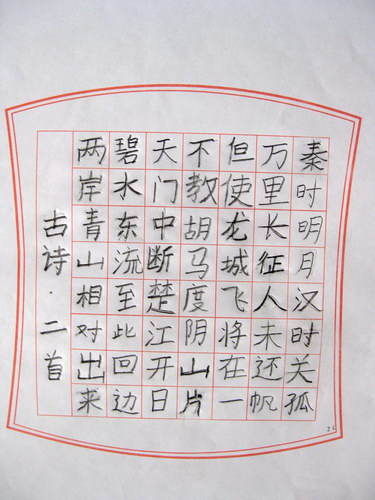 秦时明月汉时关
万里长征人未还
但使龙城飞将在
不教胡马度阴山
天门中断楚江开
碧水东流至此回
两岸青山相对出
孤帆一片日边来
古诗·二首